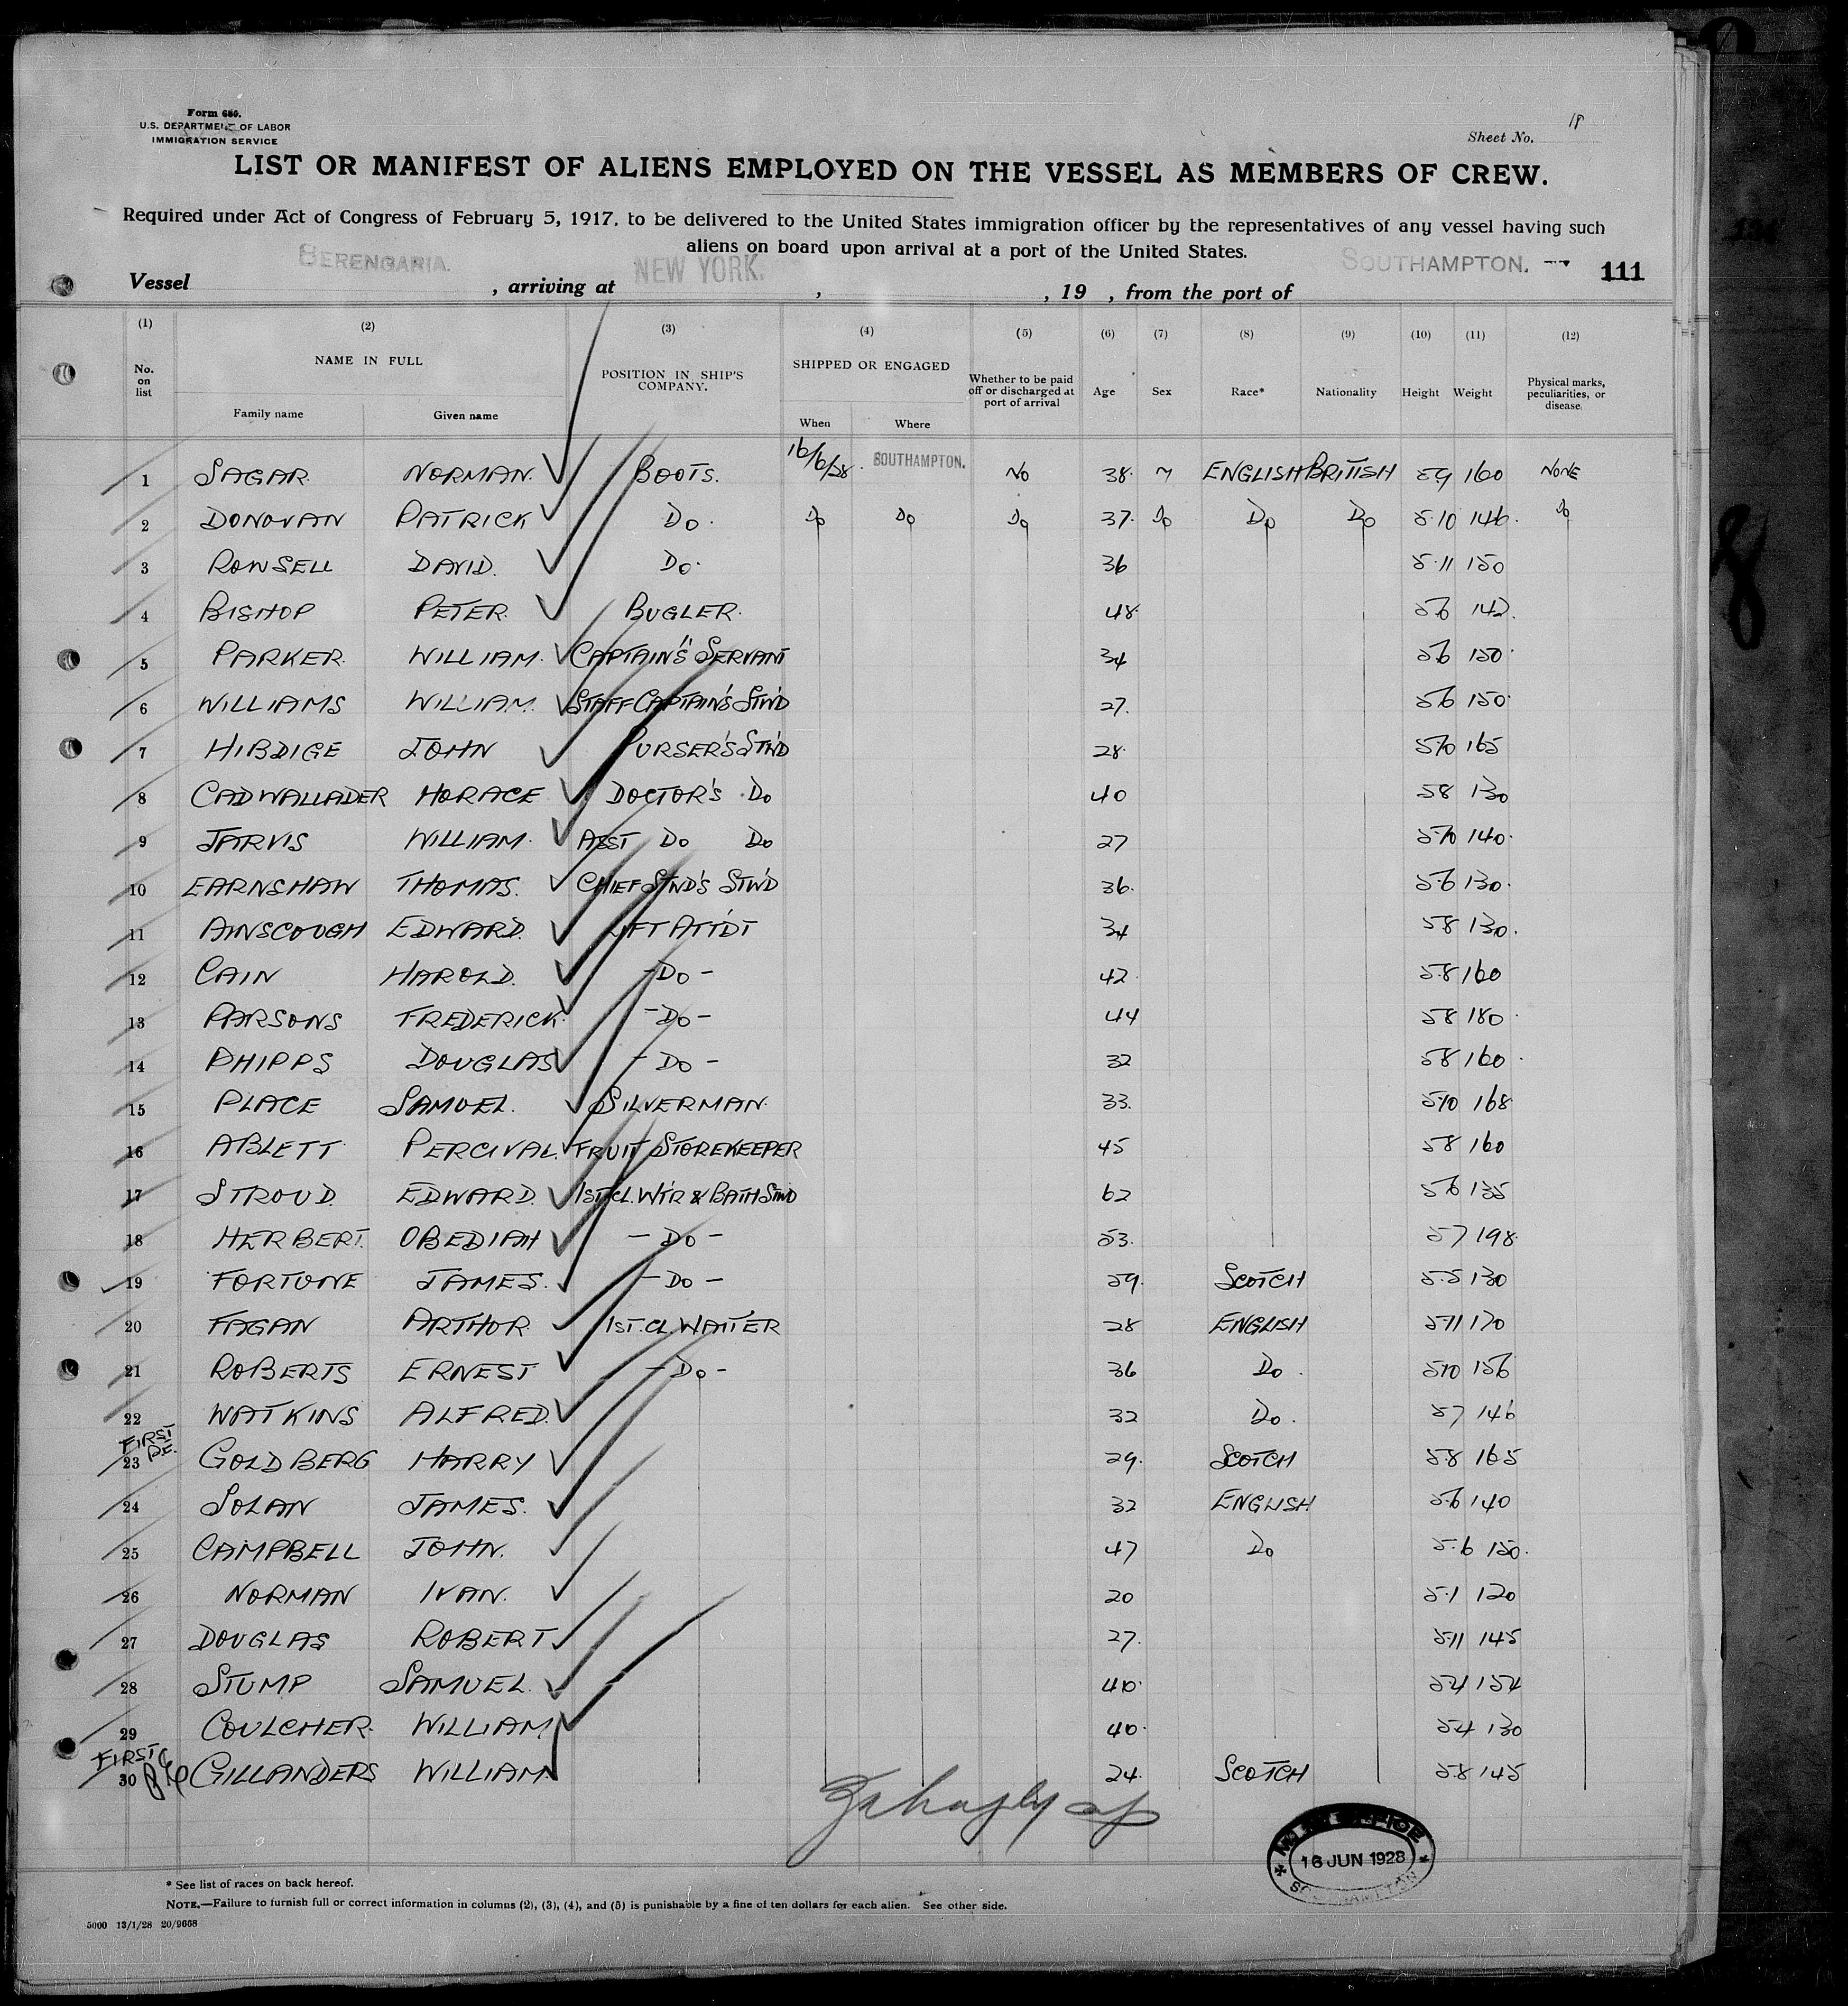 Form 680.
U.S. DEPARTMENT OF LABOR
IMMIGRATION SERVICE
Sheet No. 18
LIST OR MANIFEST OF ALIENS EMPLOYED ON THE VESSEL AS MEMBERS OF CREW.
Required under Act of Congress of February 5, 1917, to be delivered to the United States immigration officer by the representatives of any vessel having such
aliens on board upon arrival at a port of the United States.
Vessel BERENGARIA. , arriving at NEW YORK. , , 19 , from the port of SOUTHAMPTON. 111
(1) (2) (3) (4) (5) (6) (7) (8) (9) (10) (11) (12)
No. on list NAME IN FULL Family name Given name POSITION IN SHIP'S COMPANY. SHIPPED OR ENGAGED When Where Whether to be paid off or discharged at port of arrival Age Sex Race* Nationality Height Weight Physical marks, peculiarities, or disease.
1 SAGAR NORMAN. BOOTS. 16/6/28. SOUTHAMPTON. NO 38. M ENGLISH BRITISH 5.9 160 NONE
2 DONOVAN PATRICK DO. DO DO DO 37. DO DO DO 5.10 146. DO
3 ROWSELL DAVID. DO. 36 5.11 150
4 BISHOP PETER. BUGLER. 48. 5.6 142.
5 PARKER. WILLIAM. CAPTAIN'S SERVANT 34 5.6 150.
6 WILLIAMS WILLIAM. STAFF CAPTAIN'S STWD 27. 5.6 150.
7 HIBDIGE JOHN PURSER'S STWD 28. 5.10 165
8 CADWALLADER HORACE DOCTOR'S DO 40 5.8 130
9 JARVIS WILLIAM. ASST DO DO 27 5.10 140.
10 EARNSHAW THOMAS. CHIEF STWD'S STWD 36. 5.6 130.
11 AINSCOUGH EDWARD. LIFT ATTDT 34 5.8 130.
12 CAIN HAROLD. -DO- 42. 5.8 160
13 PARSONS FREDERICK. -DO- 44 5.8 180.
14 PHIPPS DOUGLAS -DO- 32 5.8 160.
15 PLACE SAMUEL. SILVERMAN. 33. 5.10 168
16 ABLETT. PERCIVAL. FRUIT STOREKEEPER 45 5.8 160
17 STROUD. EDWARD. 1ST.CL.WTR & BATH STWD 62 5.6 135
18 HERBERT. OBEDIAH -DO- 53. 5.7 198.
19 FORTUNE JAMES. -DO- 59. SCOTCH 5.5 130
20 FAGAN ARTHUR 1ST.CL.WAITER 28 ENGLISH 5.11 170
21 ROBERTS ERNEST -DO- 36 DO. 5.10 156
22 WATKINS ALFRED. 32 DO. 5.7 146
FIRST
23 GOLDBERG HARRY 29. SCOTCH 5.8 165
24 SOLAN JAMES. 32 ENGLISH 5.6 140
25 CAMPBELL JOHN. 47 DO 5.6 150.
26 NORMAN IVAN. 20 5.1 120
27 DOUGLAS ROBERT 27. 5.11 145
28 STUMP SAMUEL. 40. 5.4 154
29 COULCHER. WILLIAM 40. 5.4 130
FIRST
30 GILLANDERS WILLIAM 24. SCOTCH 5.8 145
16 JUN 1928
SOUTHAMPTON
* See list of races on back hereof.
NOTE.—Failure to furnish full or correct information in columns (2), (3), (4), and (5) is punishable by a fine of ten dollars for each alien. See other side.
5000 13/1/28 20/9668